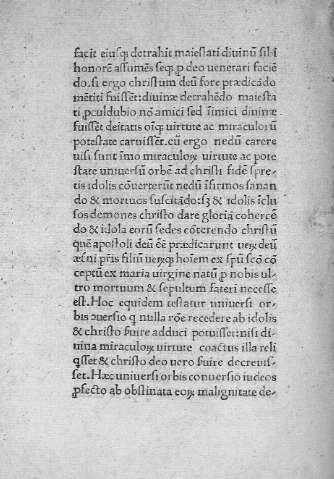 facit eiusq; detrahit maiestati diuinũ sibi
honorẽ assumẽs seq; p deo uenerari faciẽ
do. si ergo christum deũ fore prædicãdo
mẽtiti fuissẽt: diuinæ detrahẽdo maiesta
ti pculdubio nõ amici sed ĩimici diuinæ
fuissẽt deitatis oĩq; uirtute ac miraculorũ
potestate caruissẽt. cũ ergo nedũ carere
uisi sunt ĩmo miraculoꝝ uirtute ac pote
state uniuersũ orbẽ ad christi fidẽ spre-
tis idolis cõuerterũt nedũ ĩfirmos sanan
do & mortuos suscitãdo: sꝫ & idolis iclu
sos demones christo dare gloriã coherce
do & idola eorũ sedes cõterendo christũ
quẽ apostoli deũ eẽ prædicarunt ueꝝ deũ
æterni pr̃is filiũ ueꝝq; hoiem ex spũ scõ cõ
ceptũ ex maria uirgine natũ p nobis ul-
tro mortuum & sepultum fateri necesse
est. Hoc equidem testatur uniuersi or-
bis ɔuersio q nulla rõe recedere ab idolis
& christo ƀuire adduci potuisset: nisi di-
uina miraculoꝝ uirtute coactus illa reli
q̃sset & christo deo uero ƀuire decreuis-
set. Hæc uniuersi orbis conuersio iudeos
ꝓfecto ab obstinata eoꝝ malignitate de-